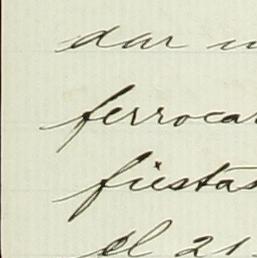 dar u
ferrocar
fiestas
el 21